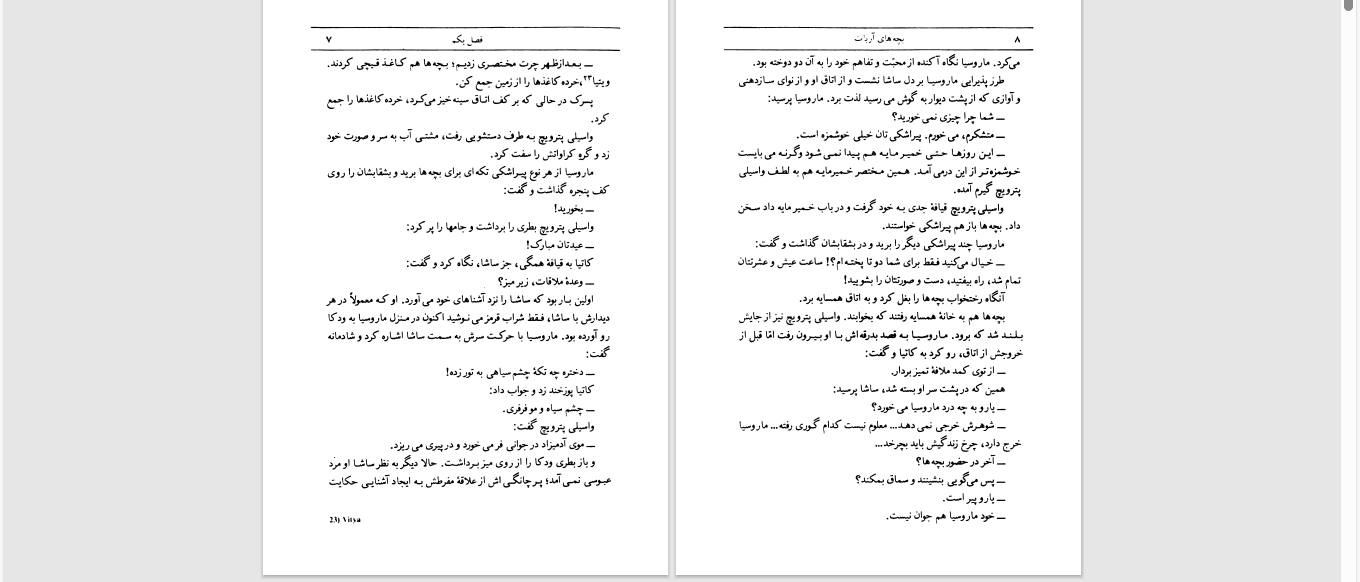 فصل یکم
۷
ــ بعدازظهر چرت مختصری زدیم؛ بچه‌ها هم کاغذ قیچی کردند.
ویتیا۲۳،خرده کاغذها را از زمین جمع کن.
پسرک در حالی که بر کف اتاق سینه‌خیز می‌کرد، خرده کاغذها را جمع
کرد.
واسیلی پترویچ به طرف دستشویی رفت، مشتی آب به سر و صورت خود
زد و گره کراواتش را سفت کرد.
ماروسیا از هر نوع پیراشکی تکه‌ای برای بچه‌ها برید و بشقابشان را روی
کف پنجره گذاشت و گفت:
ــ بخورید!
واسیلی پترویچ بطری را برداشت و جامها را پر کرد:
ــ عیدتان مبارک!
کاتیا به قیافهٔ همگی، جز ساشا، نگاه کرد و گفت:
ــ وعدهٔ ملاقات، زیر میز؟
اولین بار بود که ساشا را نزد آشناهای خود می‌آورد. او که معمولاً در هر
دیدارش با ساشا، فقط شراب قرمز می نوشید اکنون در منزل ماروسیا به ودکا
رو آورده بود. ماروسیا با حرکت سرش به سمت ساشا اشاره کرد و شادمانه
گفت:
ــ دختره چه تکهٔ چشم سیاهی به تور زده!
کاتیا پوزخند زد و جواب داد:
ــ چشم سیاه و مو فرفری.
واسیلی پترویچ گفت:
ــ موی آدمیزاد در جوانی فر می خورد و در پیری می ریزد.
و باز بطری ودکا را از روی میز برداشت. حالا دیگر به نظر ساشا او مرد
عبوسی نمی آمد؛ پرچانگی اش از علاقهٔ مفرطش به ایجاد آشنایی حکایت
23) Vitya
۸
بچه‌های آربات
می‌کرد. ماروسیا نگاه آکنده از محبّت و تفاهم خود را به آن دو دوخته بود.
طرز پذیرایی ماروسیا بر دل ساشا نشست و از اتاق او و از نوای سازدهنی
و آوازی که از پشت دیوار به گوش می رسید لذت برد. ماروسیا پرسید:
ــ شما چرا چیزی نمی خورید؟
ــ متشکرم، می خورم. پیراشکی تان خیلی خوشمزه است.
ــ این روزها حتی خمیر مایه هم پیدا نمی شود وگرنه می بایست
خوشمزه‌تر از این درمی آمد. همین مختصر خمیرمایه هم به لطف واسیلی
پترویچ گیرم آمده.
واسیلی پترویچ قیافهٔ جدی به خود گرفت و در باب خمیر مایه داد سخن
داد. بچه‌ها باز هم پیراشکی خواستند.
ماروسیا چند پیراشکی دیگر را برید و در بشقابشان گذاشت و گفت:
ــ خیال می‌کنید فقط برای شما دو تا پخته‌ام؟! ساعت عیش و عشرتتان
تمام شد، راه بیفتید، دست و صورتتان را بشویید!
آنگاه رختخواب بچه‌ها را بغل کرد و به اتاق همسایه برد.
بچه‌ها هم به خانهٔ همسایه رفتند که بخوابند. واسیلی پترویچ نیز از جایش
بلند شد که برود. ماروسیا به قصد بدرقه‌اش با او بیرون رفت امّا قبل از
خروجش از اتاق، رو کرد به کاتیا و گفت:
ــ از توی کمد ملافهٔ تمیز بردار.
همین که در پشت سر او بسته شد، ساشا پرسید:
ــ یارو به چه درد ماروسیا می خورد؟
ــ شوهرش خرجی نمی دهد... معلوم نیست کدام گوری رفته... ماروسیا
خرج دارد، چرخ زندگیش باید بچرخد...
ــ آخر در حضور بچه‌ها؟
ــ پس می‌گویی بنشینند و سماق بمکند؟
ــ یارو پیر است.
ــ خود ماروسیا هم جوان نیست.